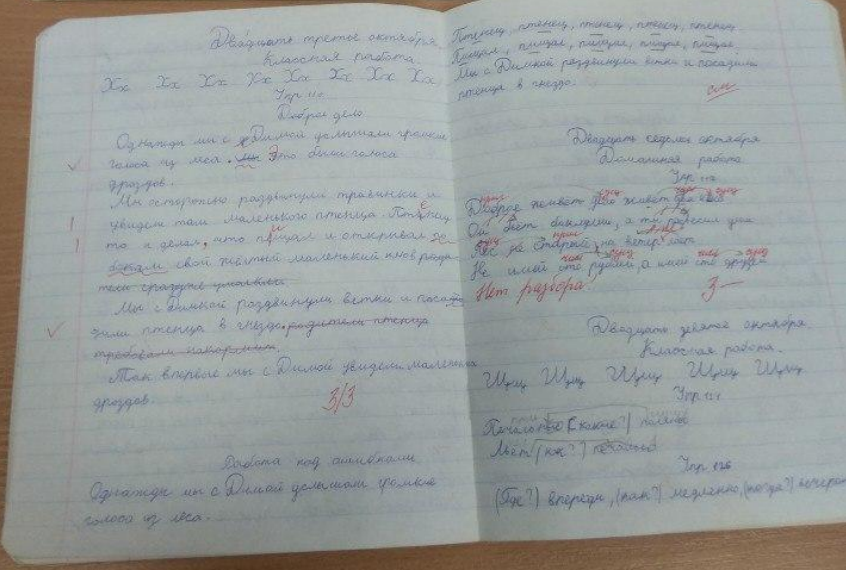 Двадцать третье октября.
Классная работа.
Хх Хх Хх Хх Хх Хх Хх Хх
Упр 110
Доброе дело
Однажды мы с Димой услышали громкие
голоса из леса. Это были голоса
дроздов.
Мы осторожно раздвинули травинки и
увидели там маленького птенца. Птенец
то и делал, что пищал и открывал
свой жёлтый маленький клюв
Мы с Димкой раздвинули ветки и поса
дили птенца в гнездо. родители птенца
требовали накормим.
Так впервые мы с Димой увидели маленьких
дроздов.
3/3
Работа над ошибками
Однажды мы с Димой услышали громкие
голоса из леса.
Птенец, птенец, птенец, птенец, птенец
Пищал, пищал, пищал, пищал, пищал.
Мы с Димкой раздвинули ветки и посадили
птенца в гнездо.
см
Двадцать седьмое октября
Домашняя работа
Упр 112
Доброе живёт два века
а ты
Лес за
Не имей сто рублей, а имей сто друзей
Нет разбора. 3-
Двадцать девятое октября.
Классная работа.
Щщ Щщ Щщ Щщ Щщ
Упр 124
(какие?)
(как?)
Упр 126
(Где?) впереди, (как?) медленно, (когда?) вечером